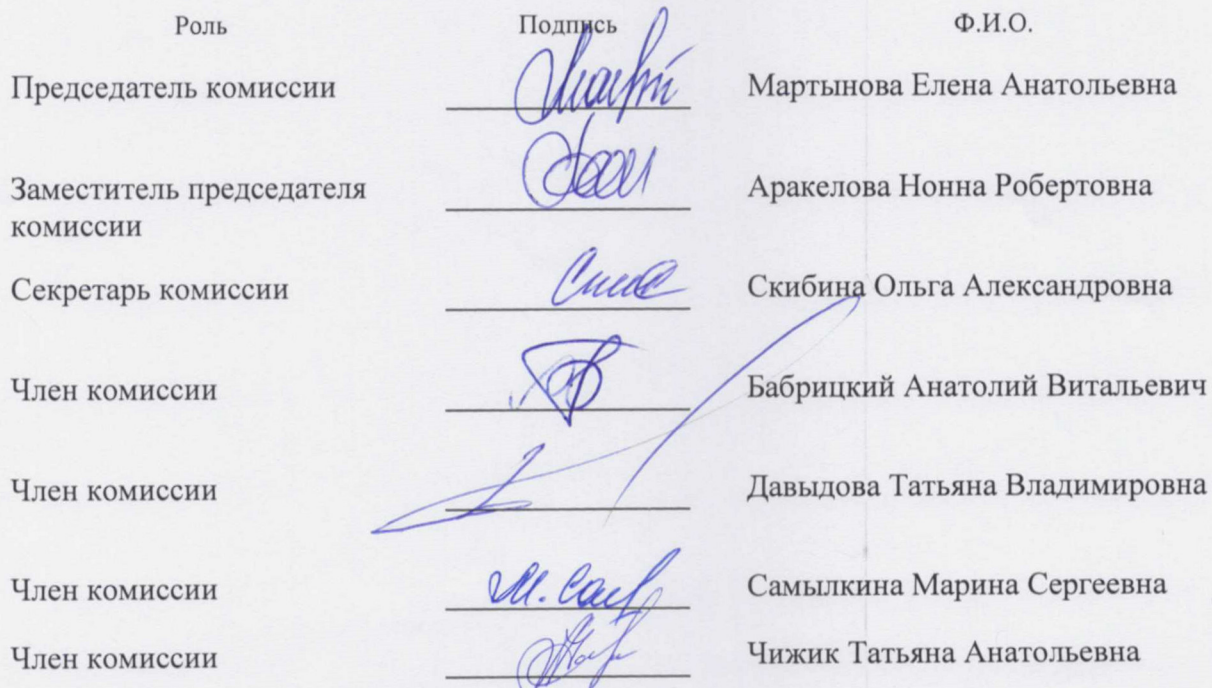 Роль Подпись Ф.И.О.
Председатель комиссии Мартынова Елена Анатольевна
Заместитель председателя комиссии Аракелова Нонна Робертовна
Секретарь комиссии Скибина Ольга Александровна
Член комиссии Бабрицкий Анатолий Витальевич
Член комиссии Давыдова Татьяна Владимировна
Член комиссии М. Сам Самылкина Марина Сергеевна
Член комиссии Чижик Татьяна Анатольевна